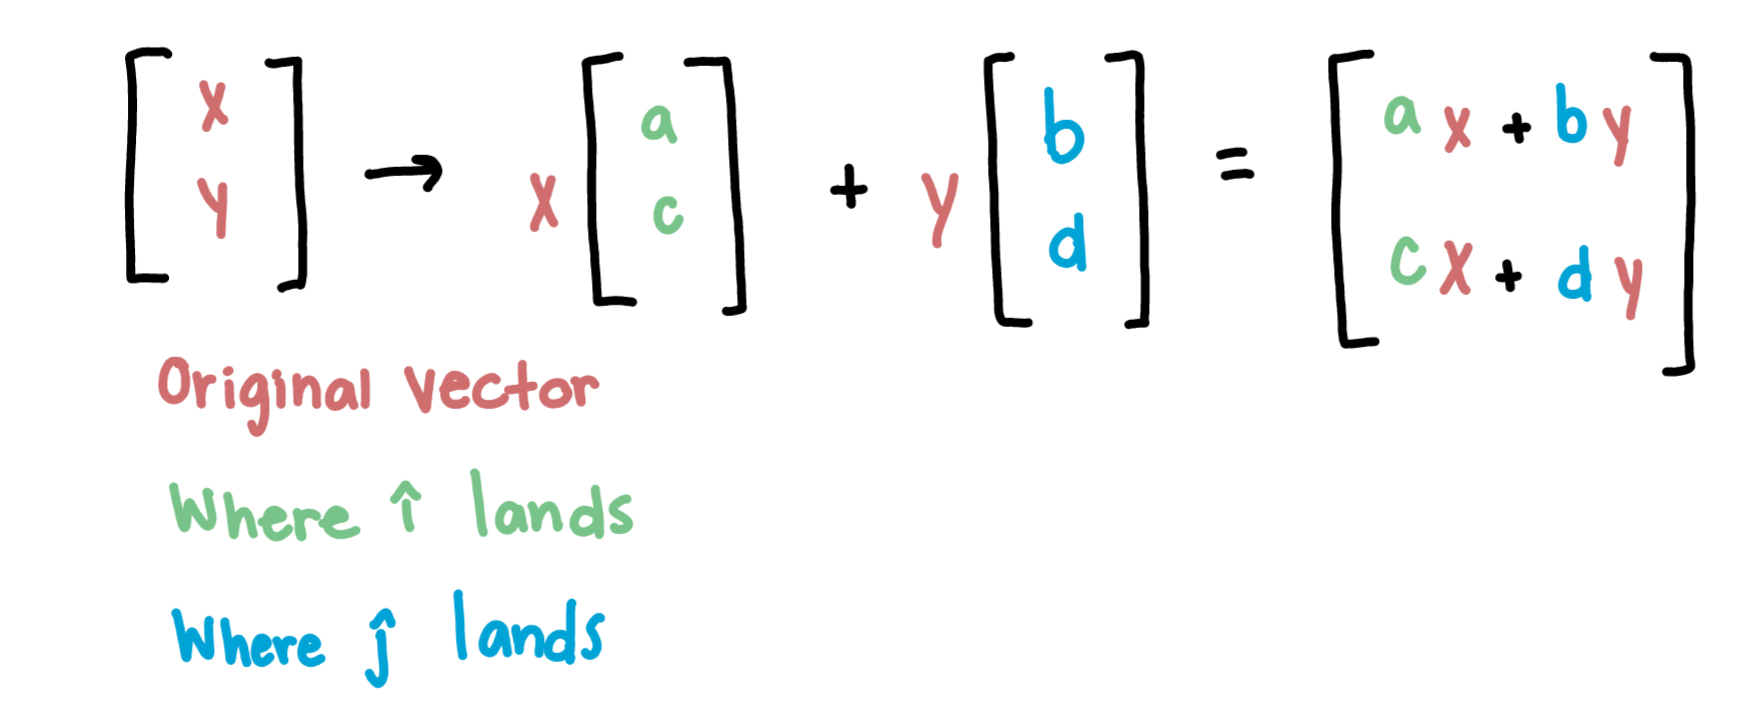 [x y] → x [a c] + y [b d] = [ax + by cx + dy]
Original vector
Where î lands
Where ĵ lands